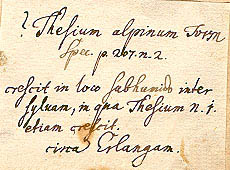 ? Thesium alpinum Torm
Spec. p. 207. n. 2.
crescit in loco subhumido inter
sylvam, in qua Thesium n. 1.
etiam crescit.
circa Erlangam.